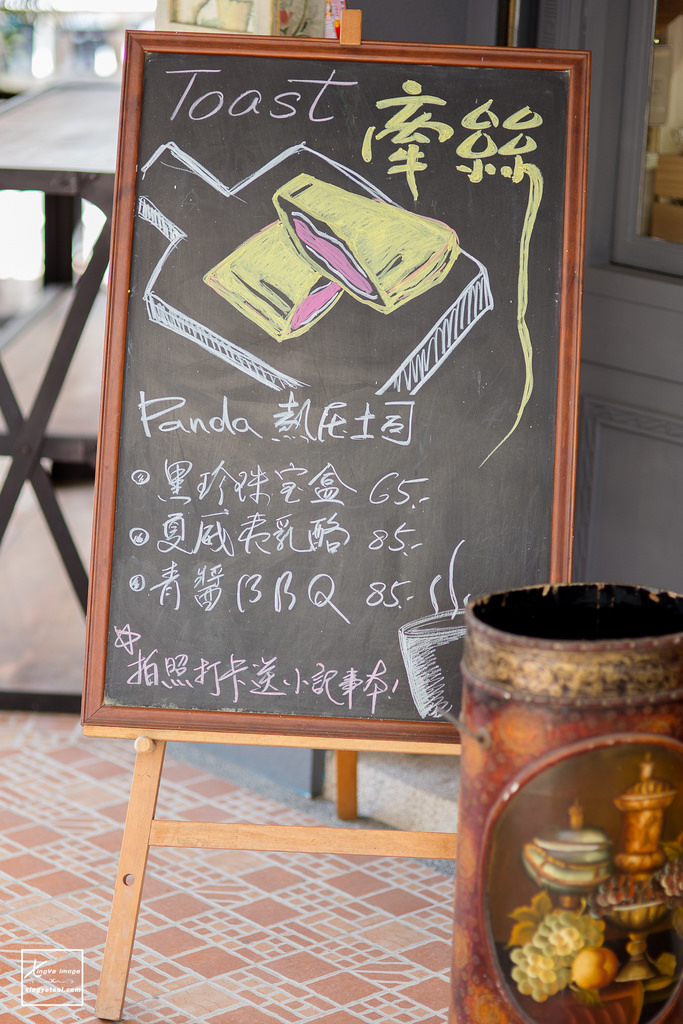 Toast 牽絲
Panda 熱压土司
① 黑珍珠宝盒 65.-
② 夏威夷乳酪 85.-
③ 青醬BBQ 85.-
☆拍照打卡送小記事本!
XingVa Image